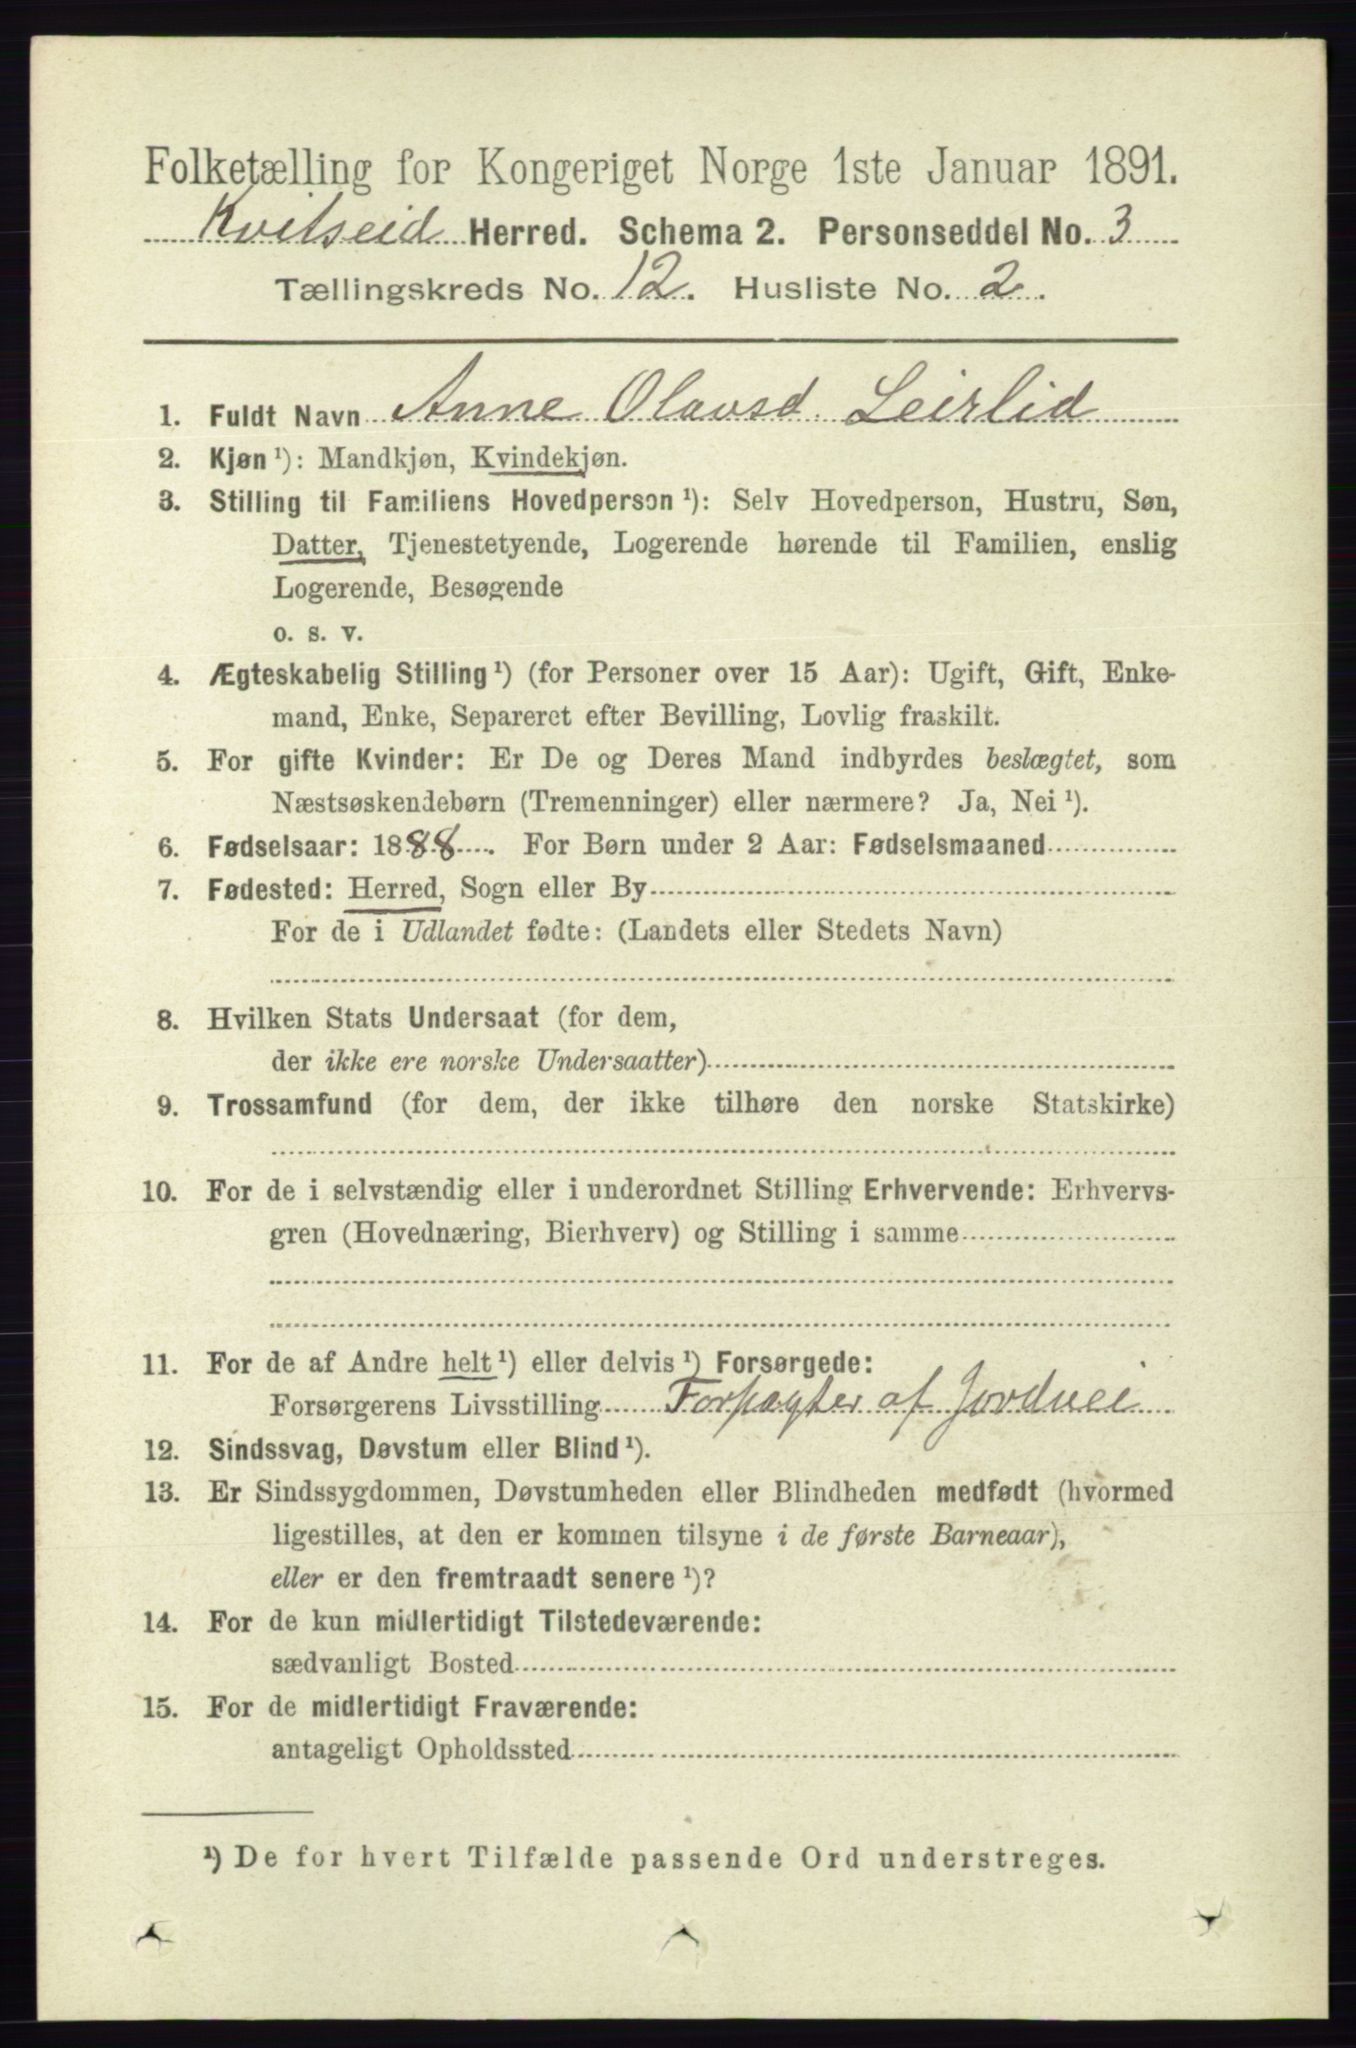 Folketælling for Kongeriget Norge 1ste Januar 1891.
Kvitseid Herred. Schema 2. Personseddel No. 3
Tællingskreds No. 12. Husliste No. 2.
1. Fuldt Navn Anne Olavsd. Leirlid
2. Kjøn ¹): Mandkjøn, Kvindekjøn.
3. Stilling til Familiens Hovedperson ¹): Selv Hovedperson, Hustru, Søn,
Datter, Tjenestetyende, Logerende hørende til Familien, enslig
Logerende, Besøgende
o. s. v.
4. Ægteskabelig Stilling ¹) (for Personer over 15 Aar): Ugift, Gift, Enke-
mand, Enke, Separeret efter Bevilling, Lovlig fraskilt.
5. For gifte Kvinder: Er De og Deres Mand indbyrdes beslægtet, som
Næstsøskendebørn (Tremenninger) eller nærmere? Ja, Nei ¹).
6. Fødselsaar: 1888. For Børn under 2 Aar: Fødselsmaaned
7. Fødested: Herred, Sogn eller By
For de i Udlandet fødte: (Landets eller Stedets Navn)
8. Hvilken Stats Undersaat (for dem,
der ikke ere norske Undersaatter)
9. Trossamfund (for dem, der ikke tilhøre den norske Statskirke)
10. For de i selvstændig eller i underordnet Stilling Erhvervende: Erhvervs-
gren (Hovednæring, Bierhverv) og Stilling i samme
11. For de af Andre helt ¹) eller delvis ¹) Forsørgede:
Forsørgerens Livsstilling Forpagter af Jordvei
12. Sindssvag, Døvstum eller Blind ¹).
13. Er Sindssygdommen, Døvstumheden eller Blindheden medfødt (hvormed
ligestilles, at den er kommen tilsyne i de første Barneaar),
eller er den fremtraadt senere ¹)?
14. For de kun midlertidigt Tilstedeværende:
sædvanligt Bosted
15. For de midlertidigt Fraværende:
antageligt Opholdssted
¹) De for hvert Tilfælde passende Ord understreges.